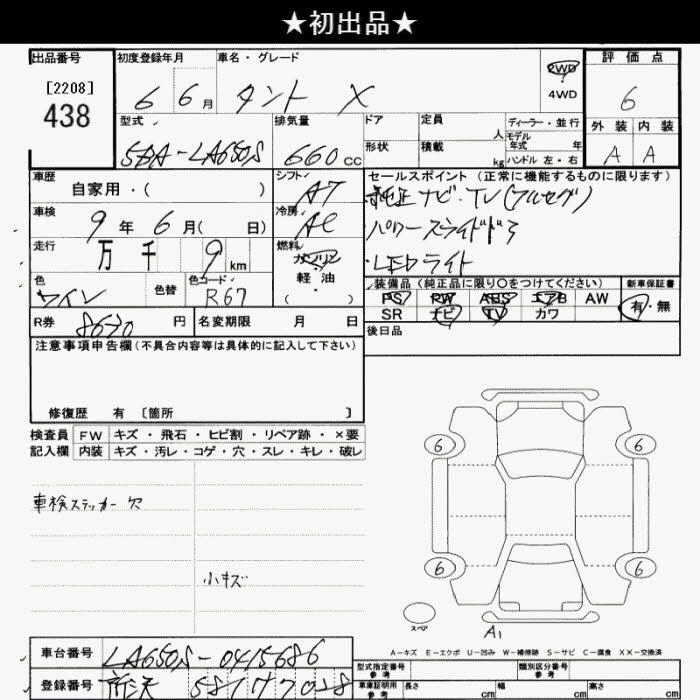 ★初出品★
出品番号
[2208]
438
初度登録年月
6 6月
車名・グレード
タント X
2WD
4WD
評価点
6
外装 内装
A A
型式
5BA-LA650S
排気量
660cc
ドア
形状
定員 人
積載 kg
ディーラー・並行
モデル年式 年
ハンドル 左・右
車歴
自家用・( )
シフト
AT
セールスポイント (正常に機能するものに限ります)
純正ナビ・TV(フルセグ)
パワースライドドア
LEDライト
車検
9年 6月( 日)
冷房
AC
走行
万 千 9km
燃料
ガソリン
軽・油
・( )
色
ワイン
色替
色コード
R67
装備品 (純正品に限り○をつけてください)
PS PW ABS エアB AW
SR ナビ TV カワ
新車保証書
有・無
R券
8630円
名変期限 月 日
後日品
注意事項申告欄(不具合内容等は具体的に記入して下さい)
修復歴 有 〔箇所 〕
検査員記入欄
FW キズ・飛石・ヒビ割・リペア跡・×要
内装 キズ・汚レ・コゲ・穴・スレ・キレ・破レ
車検ステッカー欠
小キズ
6 6
6 6
スペア
A1
A-キズ E-エクボ U-凹み W-補修跡 S-サビ C-腐食 XX-交換済
車台番号
LA650S-0415686
登録番号
581 7028
型式指定番号 参考
類別区分番号 参考
車庫証明用 参考
長さ cm
幅 cm
高さ cm